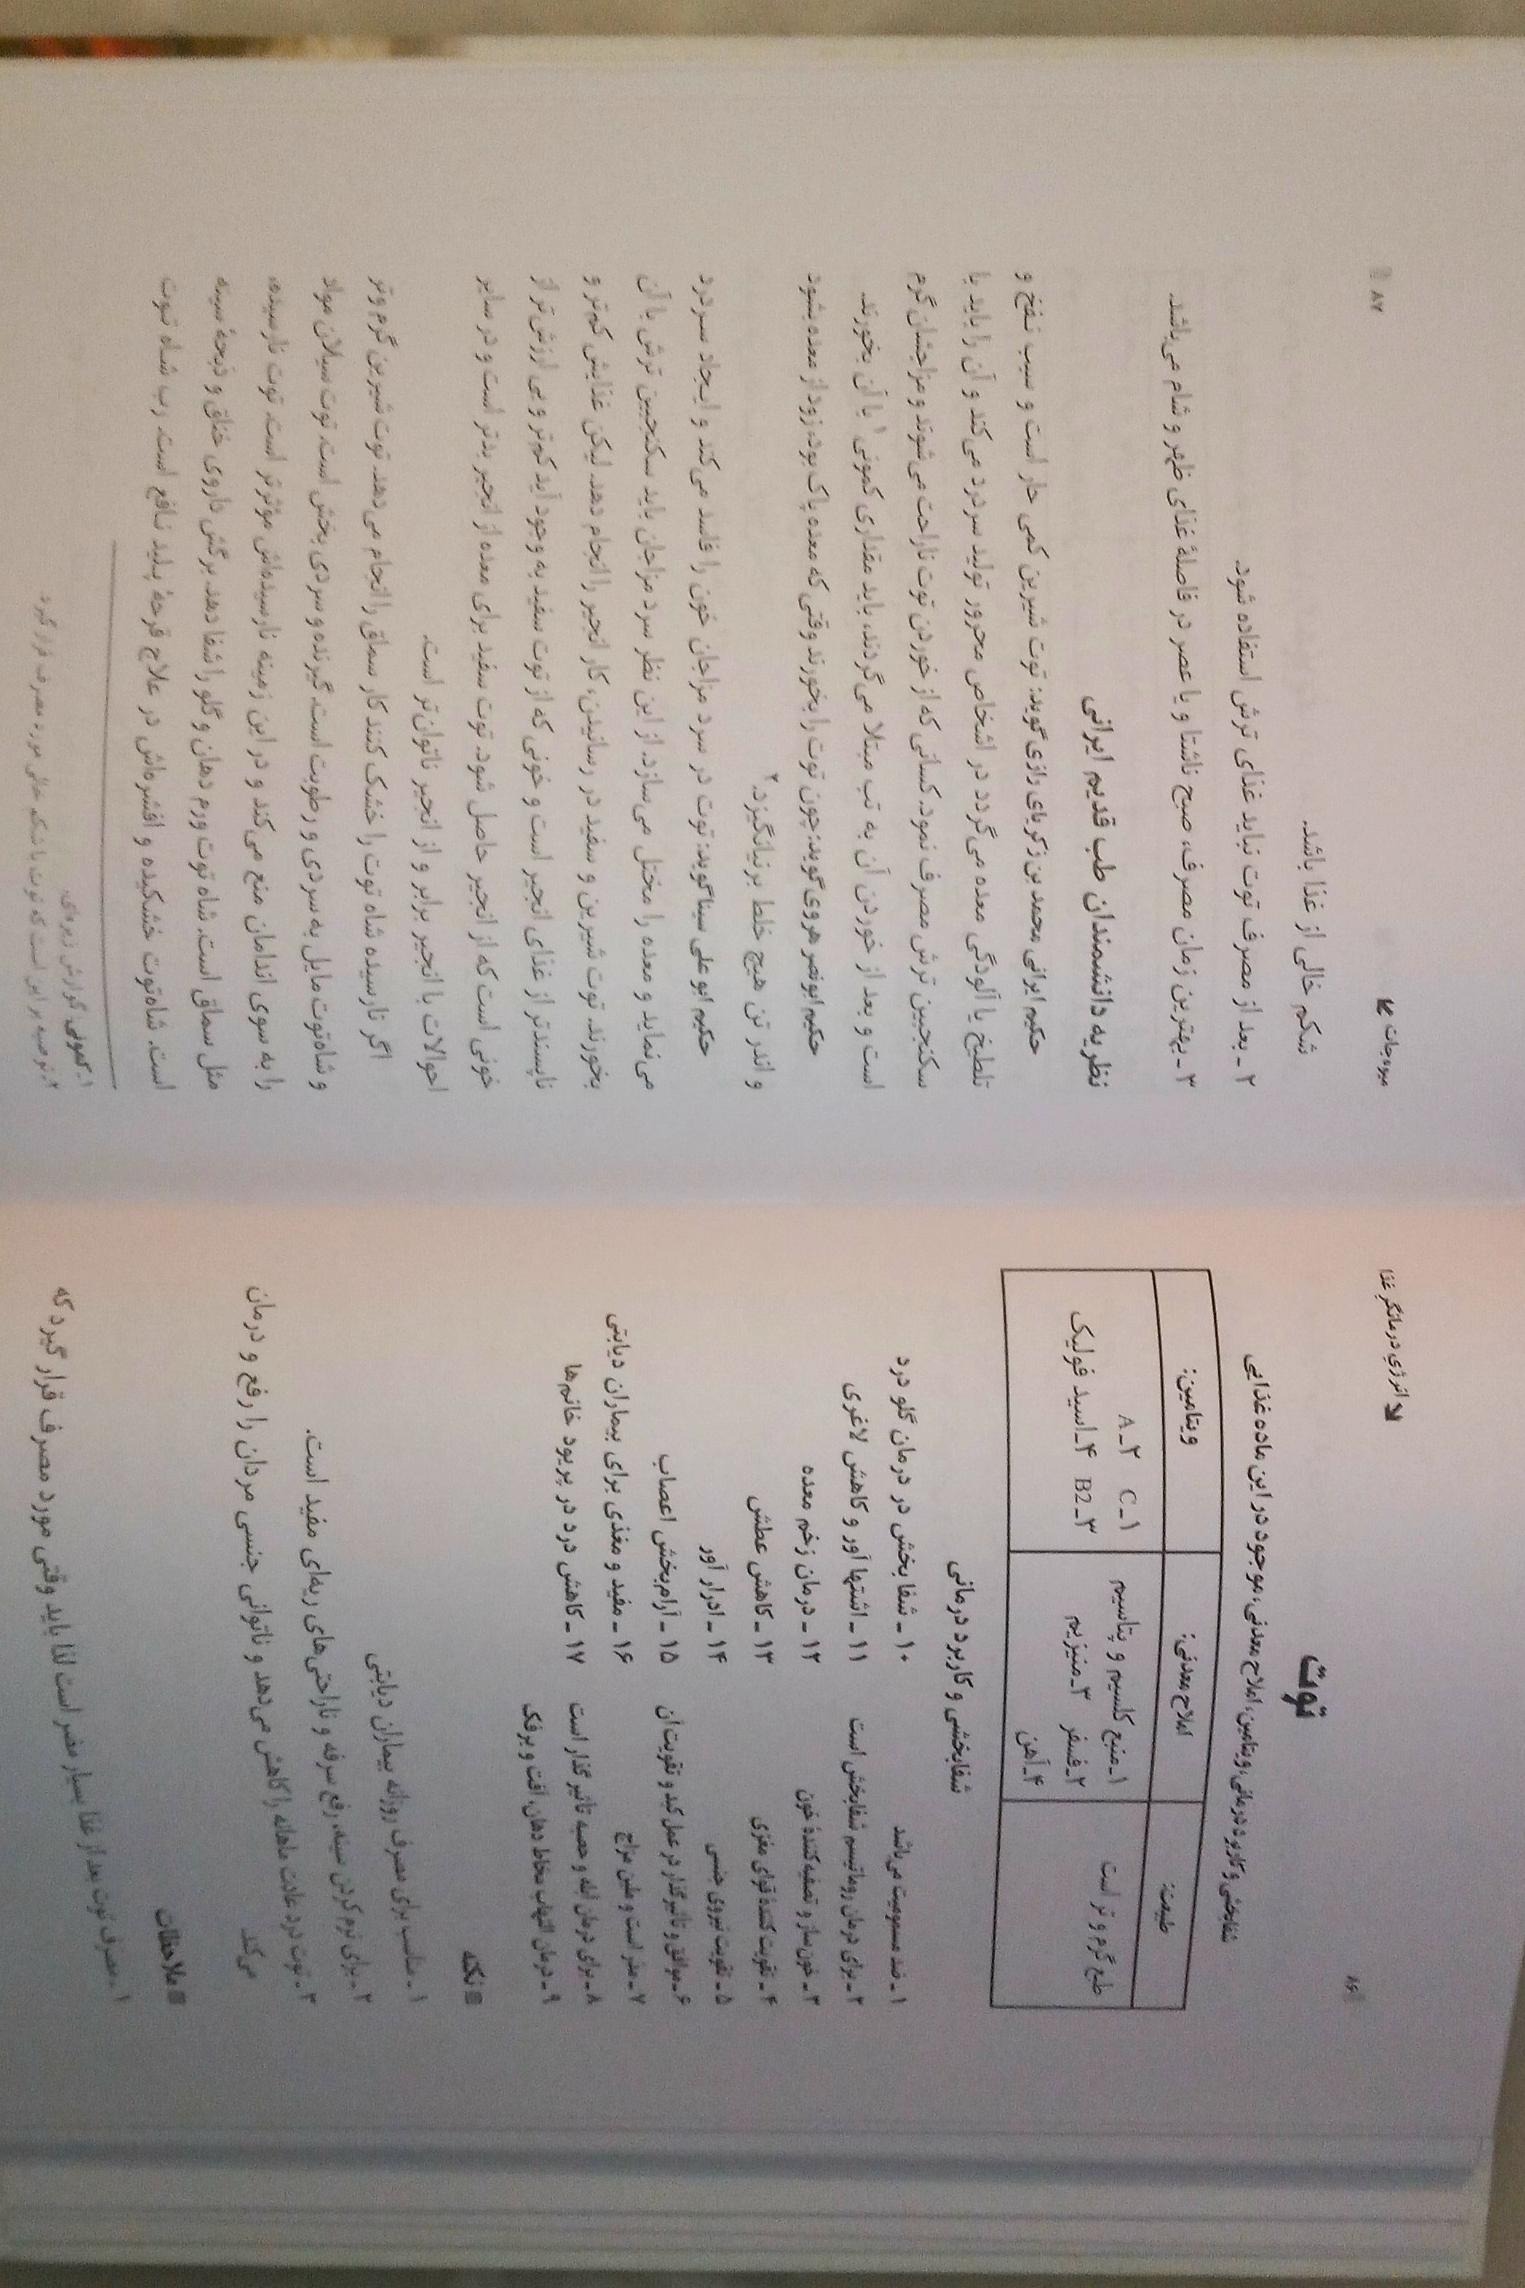 ۸۶
انرژی درمانگر غذا
توت
شفابخشی و کاربرد درمانی، ویتامین، املاح معدنی، موجود در این ماده غذایی
طبیعت:
املاح معدنی:
ویتامین:
طبع گرم و تر است
۱ـ منبع کلسیم و پتاسیم
۲ـ فسفر ۳ـ منیزیم
۴ـ آهن
۱ـ C ۲ـ A
۳ـ B2 ۴ـ اسید فولیک
شفابخشی و کاربرد درمانی
۱ ـ ضد مسمومیت می‌باشد
۲ ـ برای درمان روماتیسم شفابخش است
۳ ـ خون ساز و تصفیه کنندهٔ خون
۴ ـ تقویت کنندهٔ قوای مغزی
۵ ـ تقویت نیروی جنسی
۶ ـ موافق و تاثیرگذار در عمل کبد و تقویت آن
۷ ـ مدر است و ملین مزاج
۸ ـ برای درمان آبله و حصبه تاثیر گذار است
۹ ـ درمان التهاب مخاط دهان، آفت و برفک
۱۰ ـ شفا بخش در درمان گلو درد
۱۱ ـ اشتها آور و کاهش لاغری
۱۲ ـ درمان زخم معده
۱۳ ـ کاهش عطش
۱۴ ـ ادرار آور
۱۵ ـ آرام‌بخش اعصاب
۱۶ ـ مفید و مغذی برای بیماران دیابتی
۱۷ ـ کاهش درد در پریود خانم‌ها
نکته
۱ ـ مناسب برای مصرف روزانه بیماران دیابتی
۲ ـ برای نرم کردن سینه، رفع سرفه و ناراحتی‌های ریه‌ای مفید است.
۳ ـ توت درد عادت ماهانه را کاهش می‌دهد و ناتوانی جنسی مردان را رفع و درمان
می‌کند
ملاحظات
۱ ـ مصرف توت بعد از غذا بسیار مضر است لذا باید وقتی مورد مصرف قرار گیرد که
میوه‌جات
۸۷
شکم خالی از غذا باشد.
۲ ـ بعد از مصرف توت نباید غذای ترش استفاده شود.
۳ ـ بهترین زمان مصرف، صبح ناشتا و یا عصر در فاصلهٔ غذای ظهر و شام می‌باشد.
نظریه دانشمندان طب قدیم ایرانی
حکیم ایرانی محمد بن زکریای رازی گوید: توت شیرین کمی حار است و سبب نفخ و
تلطیخ یا آلودگی معده می‌گردد در اشخاص محرور تولید سردرد می‌کند و آن را باید با
سکنجبین ترش مصرف نمود. کسانی که از خوردن توت ناراحت می‌شوند و مزاجشان گرم
است و بعد از خوردن آن به تب مبتلا می‌گردند، باید مقداری کمونی۱ با آن بخورند.
حکیم ابونصر هروی گوید: چون توت را بخورند وقتی که معده پاک بود، زود از معده بشود
و اندر تن هیچ خلط بر نیانگیزد.۲
حکیم ابو علی سینا گوید: توت در سرد مزاجان خون را فاسد می‌کند و ایجاد سردرد
می‌نماید و معده را مختل می‌سازد. از این نظر سرد مزاجان باید سکنجبین ترش با آن
بخورند. توت شیرین و سفید در رسانیدن، کار انجیر را انجام دهد لیکن غذایش کم‌تر و
ناپسندتر از غذای انجیر است و خونی که از توت سفید به وجود آید کم‌تر و بی ارزش تر از
خونی است که از انجیر حاصل شود. توت سفید برای معده از انجیر بدتر است و در سایر
احوالات با انجیر برابر و از انجیر ناتوان‌تر است.
اگر نارسیده شاه توت را خشک کنند کار سماق را انجام می‌دهد. توت شیرین گرم و تر
و شاه‌توت مایل به سردی و رطوبت است. گیرنده و سردی بخش است. توت سیلان مواد
را به سوی اندامان منع می‌کند و در این زمینه نارسیده‌اش مؤثرتر است. توت نارسیده،
مثل سماق است. شاه توت ورم دهان و گلو را شفا دهد. برگش داروی خناق و ذبحهٔ سینه
است. شاه‌توت خشکیده و افشره‌اش در علاج قرحهٔ پلید نافع است. رب شاه توت
۱ـ کمونی: گوارش زیره‌ای.
۲ـ توصیه بر این است که توت با شکم خالی مورد مصرف قرار گیرد